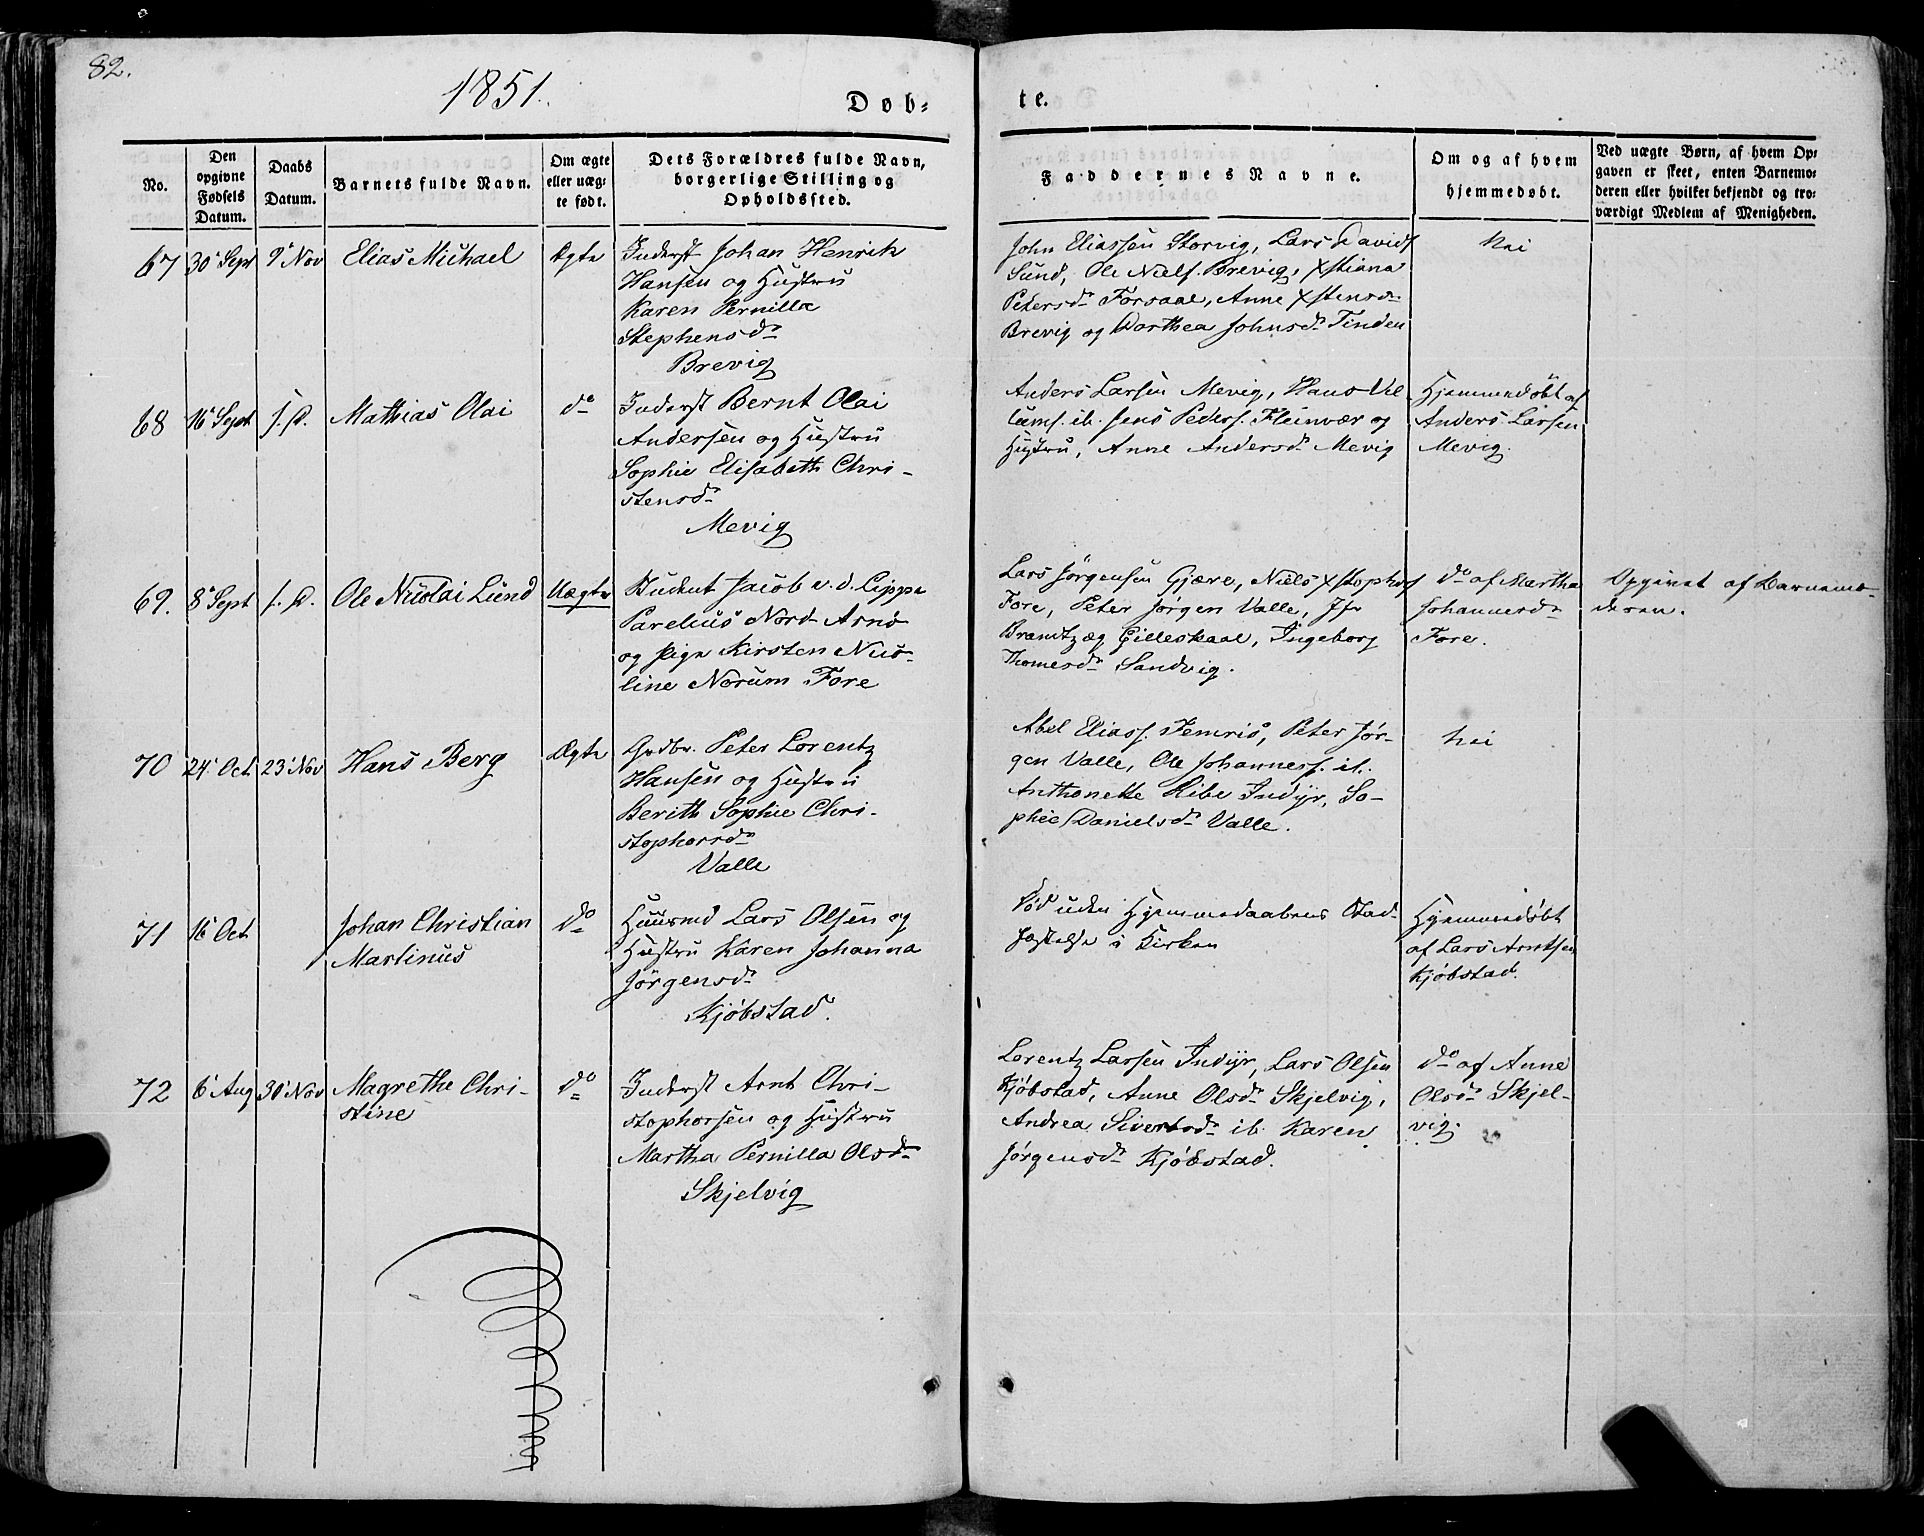 82.
1851.
Døb-
te.
No.
Den opgivne Fødsels Datum.
Daabs Datum.
Barnets fulde Navn.
Om ægte eller uæg-te født.
Dets Forældres fulde Navn, borgerlige Stilling og Opholdssted.
Faddernes Navne.
Om og af hvem hjemmedøbt.
Ved uægte Børn, af hvem Op-gaven er skeet, enten Barnemo-deren eller hvilket bekjendt og tro-værdigt Medlem af Menigheden.
67 30 Sept 9 Nov Elias Michael Ægte
Inderst Johan Henrik
Hansen og Hustru
Karen Pernilla
Stephensdr
Brevig
John Eliassen Storvig, Lars Davids
Sund, Ole Niels. Brevig, Xstiana
Petersdr Forsaae, Anne Xstensdr
Brevig og Dorthea Johnsdr Tinden
Nei
68 16 Sept s. D. Mathias Olai do
Inderst Bernt Olai
Andersen og Hustru
Sophie Elisabeth Chri-
stensdr
Mevig
Anders Larsen Mevig, Hans Vil-
lums. ib. Jens Peders. Fleinvær og
Hustru, Anne Andersdr Mevig
Hjemmedøbt af
Anders Larsen
Mevig.
69. 8 Sept s. D. Ole Nicolai Lund Uægte
Student Jacob v. d. Lippe
Parelius Nord Arnø
og Pige Kirsten Nico-
line Norum Fore
Lars Jørgensen Gjære, Niels Xstophers
Fore, Peter Jørgen Valle, Jfr
Brandtzæg Gilleskaal, Ingeborg
Thomesdr Sandvig.
do af Martha
Johannesdr
Fore.
Opgivet af Barnemo-
deren.
70 24 Oct 23 Nov Hans Berg Ægte
Grdbr. Peter Lorentz
Hansen og Hustru
Berith Sophie Chri-
stophersdr
Valle
Abel Eliass. Femris, Peter Jør-
gen Valle, Ole Johanness. ib.
Anthonette Hibe Indyr, So-
phie Danielsdr Valle.
Nei
71 16 Oct Johan Christian
Martinus
do
Huusmd Lars Olsen og
Hustru Karen Johanna
Jørgensdr
Kjøbstad.
Død uden Hjemmedaabens Stad-
fæstelse i Kirken
Hjemmedøbt
af Lars Arntsen
Kjøbstad.
72 6 Aug 30 Nov Magrethe Chri-
stine
do
Inderst Arnt Chri-
stophersen og Hustru
Martha Pernilla Olsdr
Skjelvig
Lorentz Larsen Indyr, Lars Olsen
Kjøbstad, Anne Olsdr Skjelvig,
Andrea Sivertsdr ib. Karen
Jørgensdr Kjøbstad.
do af Anne
Olsdr Skjel-
vig.